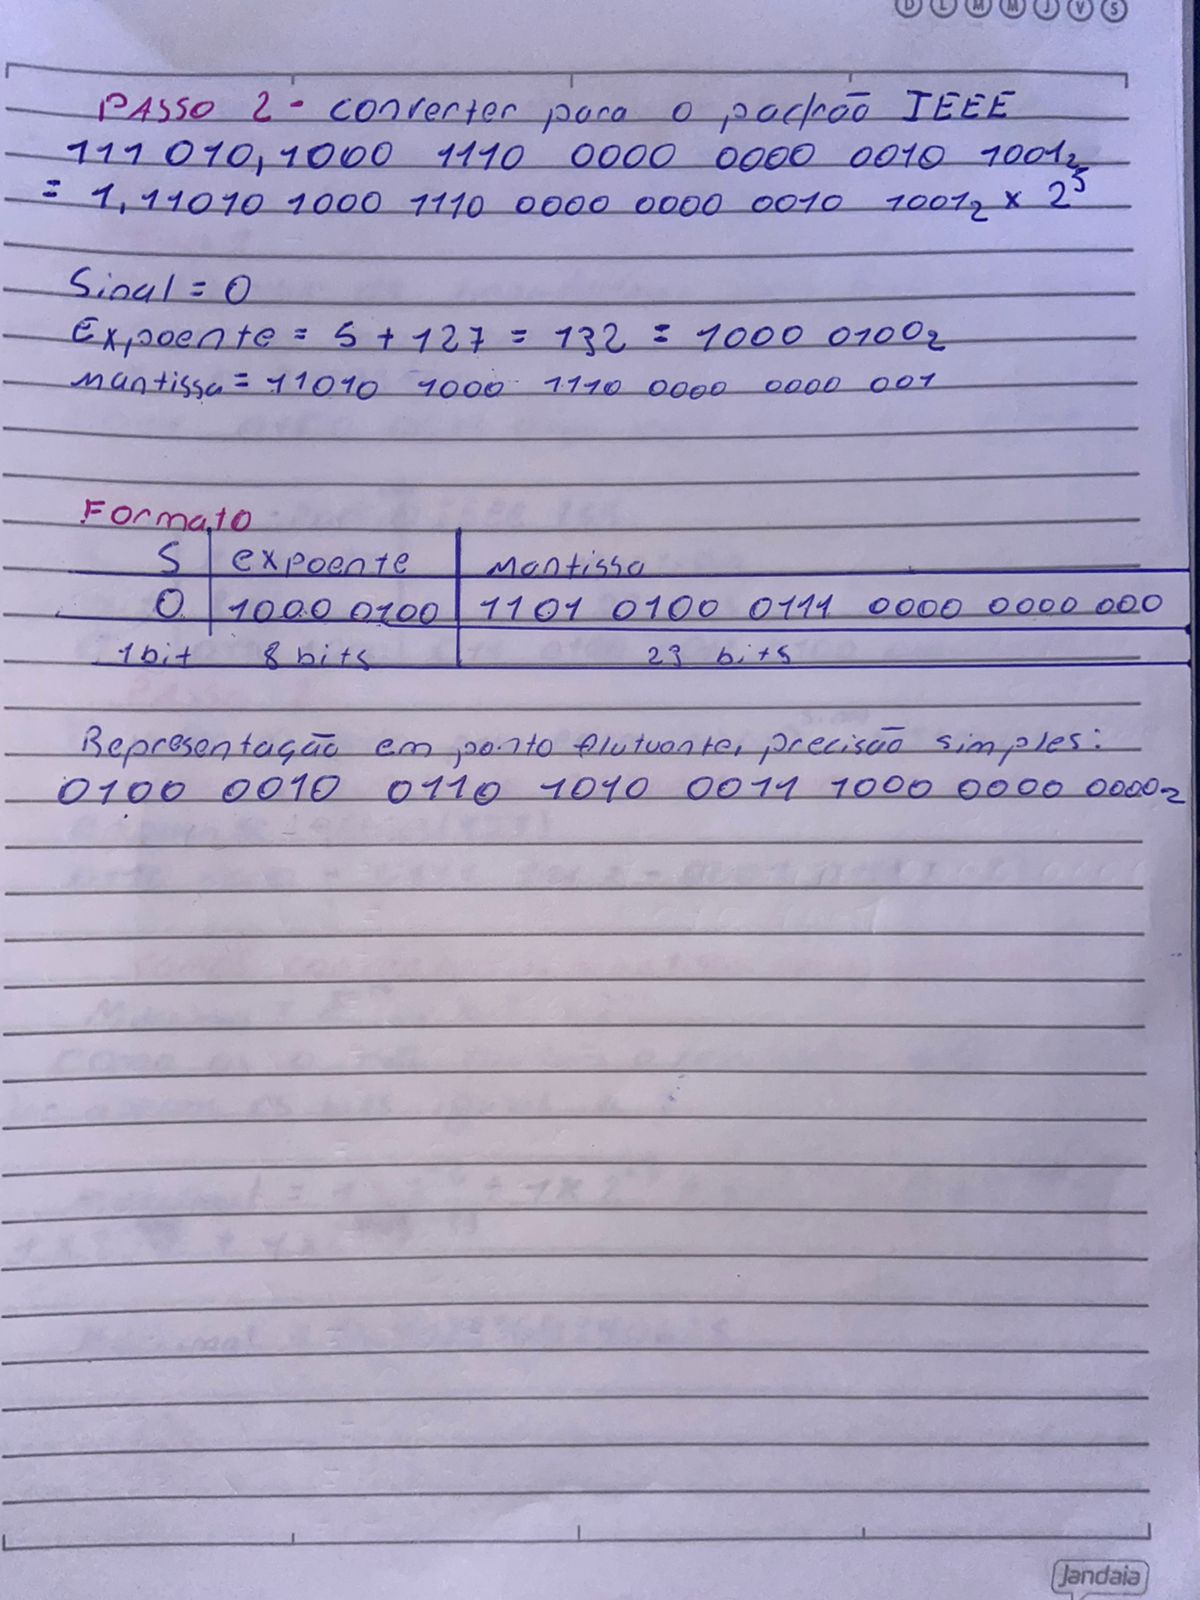 D L M M J V S
PASSO 2 - converter para o padrão IEEE
111 010,1000 1110 0000 0000 0010 1001₂
= 1,11010 1000 1110 0000 0000 0010 1001₂ x 2⁵
Sinal = 0
Expoente = 5 + 127 = 132 = 1000 0100₂
Mantissa = 11010 1000 1110 0000 0000 001
Formato
S expoente Mantissa
0 1000 0100 1101 0100 0111 0000 0000 000
1 bit 8 bits 23 bits
Representação em ponto flutuante, precisão simples:
0100 0010 0110 1010 0011 1000 0000 0000₂
Jandaia